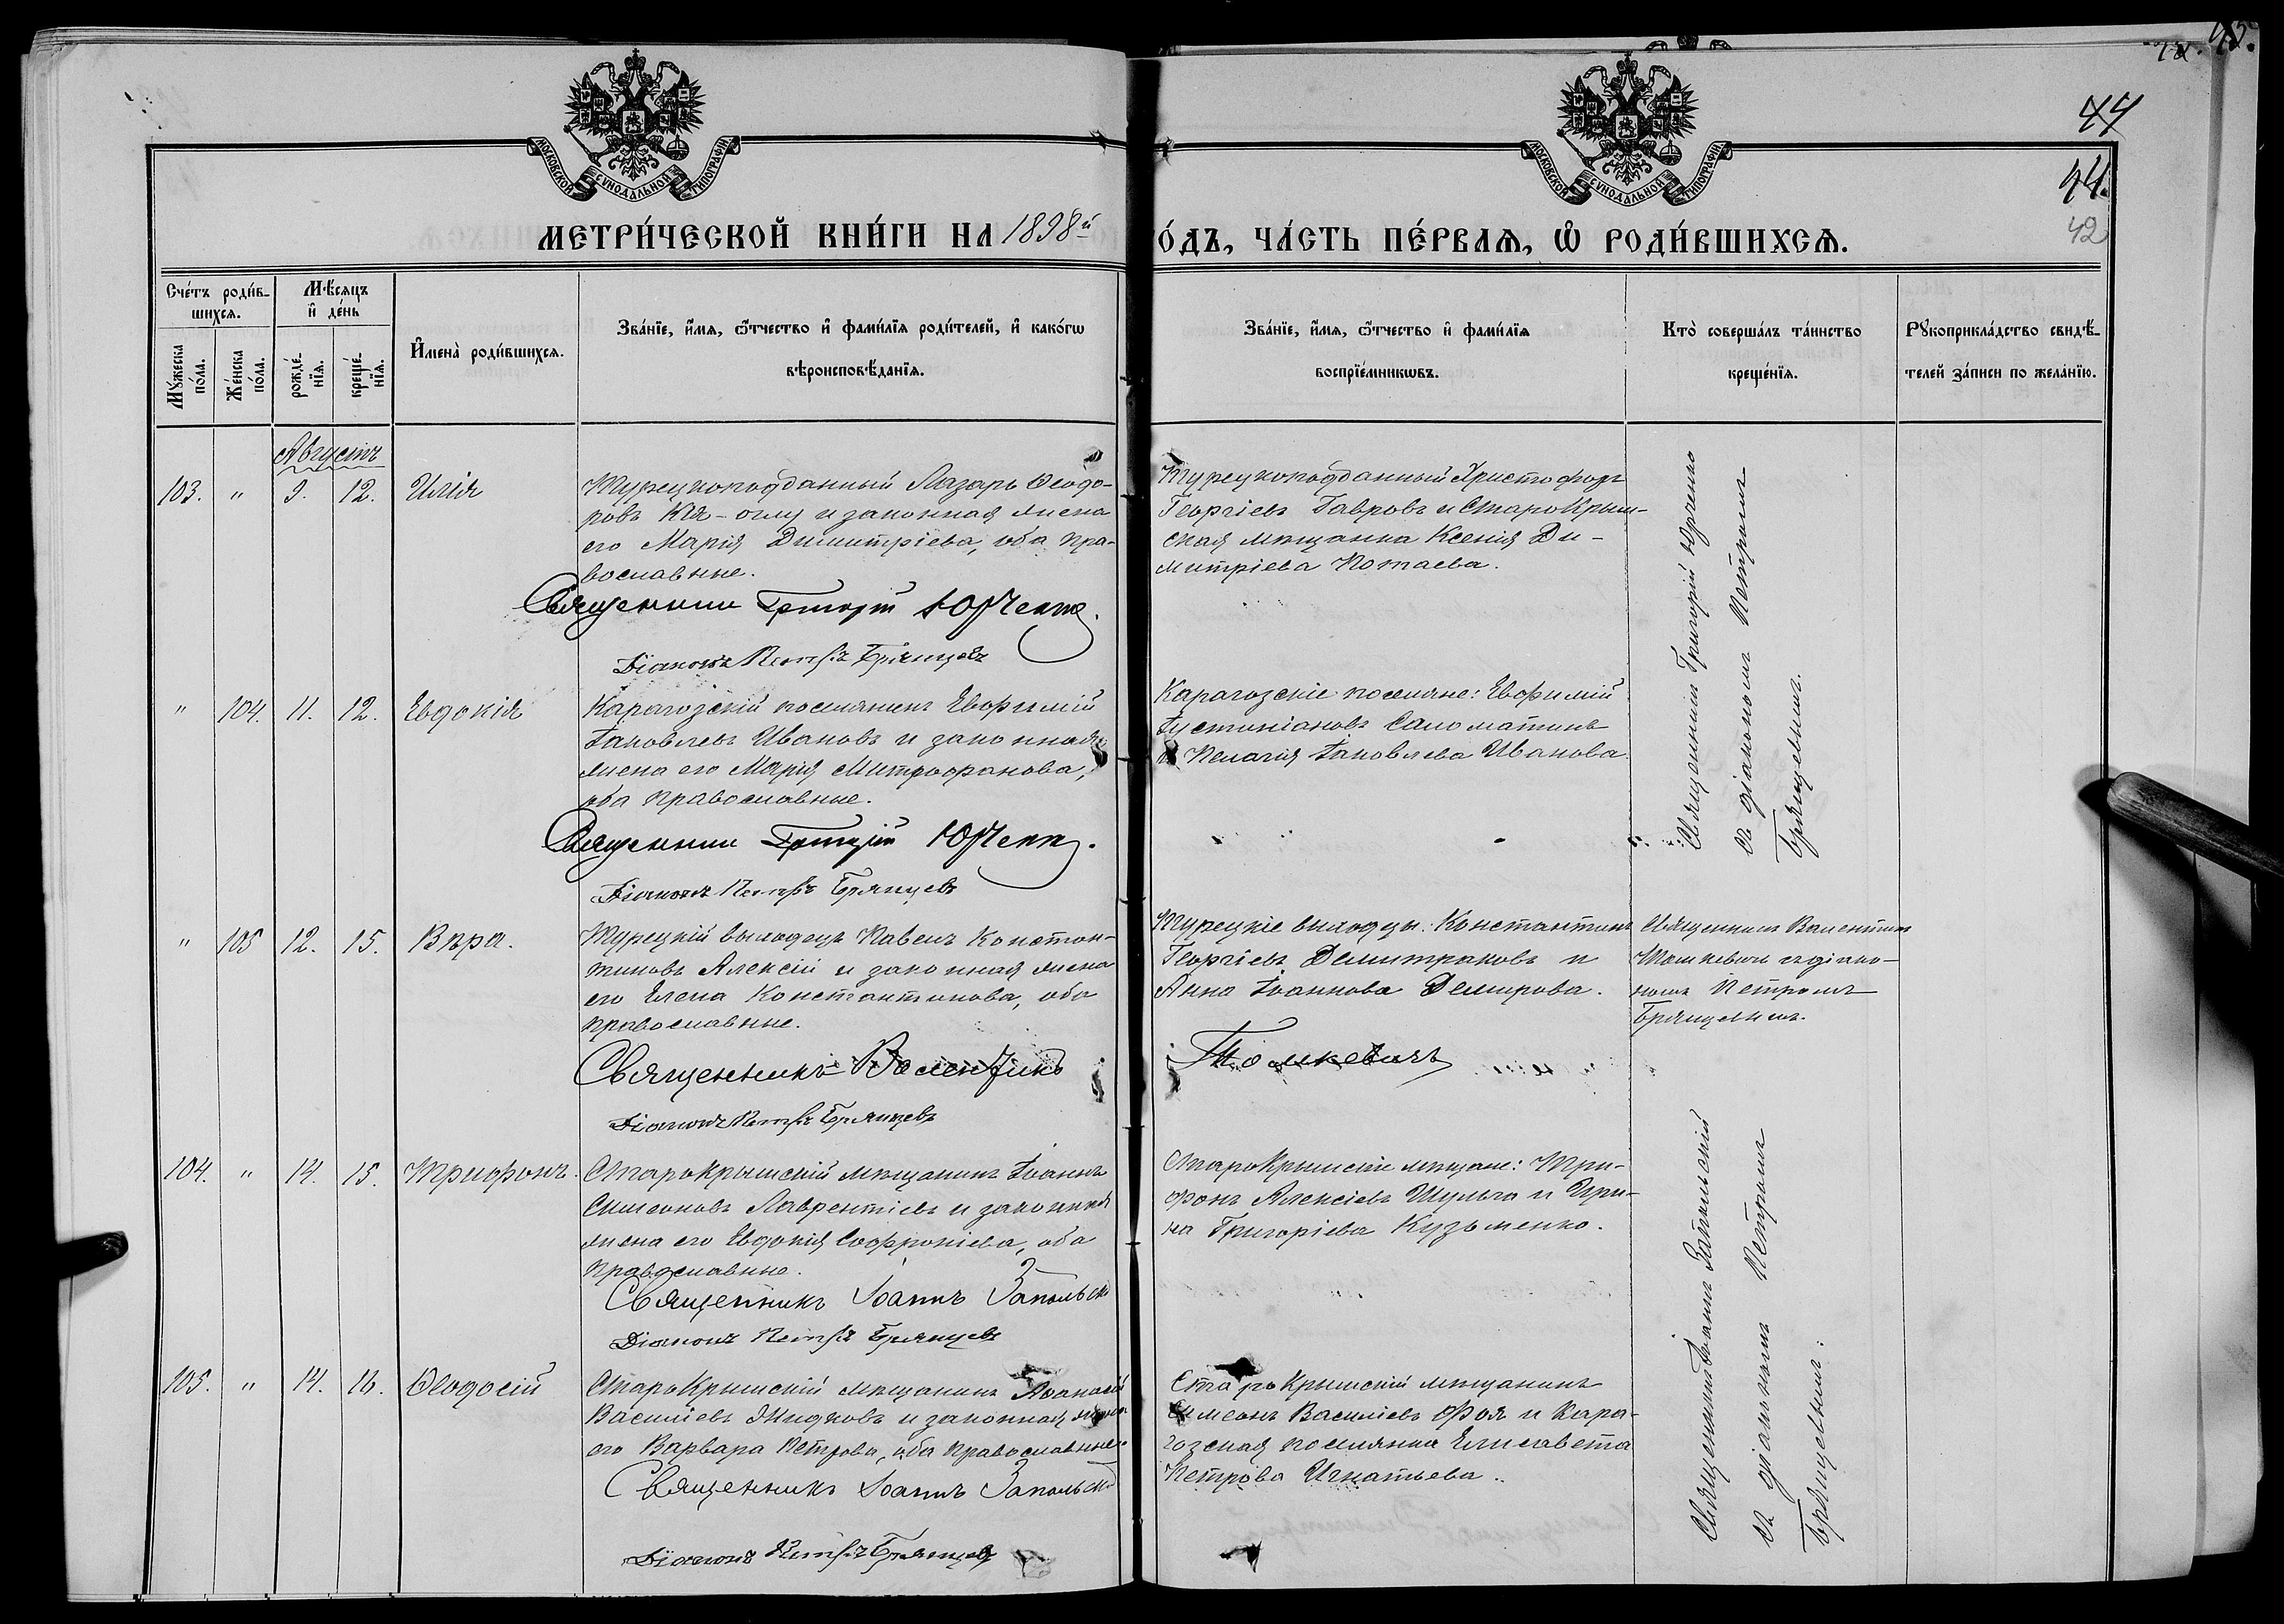 42. 43.
44
44.
42
МОСКОВСКОЙ СѴНОДАЛЬНОЙ ТИПОГРАФІИ
МОСКОВСКОЙ СѴНОДАЛЬНОЙ ТИПОГРАФІИ
МЕТРИ́ЧЕСКОЙ КНИ́ГИ НА 1898й
О́ДЪ, ЧА́СТЬ ПЕ́РВАѦ, Ѡ҆ РОДИ́ВШИХСѦ.
Сче́тъ роди́в-
шихсѧ.
Мꙋ́жеска по́ла.
Же́нска по́ла.
Мѣ́сяцъ
и҆ де́нь
рожде́-
нїѧ.
креще́-
нїѧ.
И҆мена̀ роди́вшихсѧ.
Зва́нїе, и҆́мѧ, ѻ҆́тчество и҆ фами́лїѧ роди́телей, и҆ како́гѡ
вѣроисповѣ́данїѧ.
Зва́нїе, и҆́мѧ, ѻ҆́тчество и҆ фами́лїѧ
воспрїе́мникѡвъ.
Кто̀ соверша́лъ та́инство
креще́нїѧ.
Рꙋкоприкла́дство свидѣ́-
телей за́писи по жела́нїю.
Августъ
103. " 9. 12. Илія
Турецкоподданный Лазарь Ѳеодо-
ровъ Кія-оглу и законная жена
его Марія Димитріева, оба пра-
вославные.
Священник Григорій Юрченко.
Діаконъ Петръ Брянцевъ
Турецкоподданный Христофоръ
Георгіевъ Гавровъ и СтароКрым-
ская мѣщанка Ксенія Ди-
митріева Потаева.
Священникъ Григорій Юрченко
съ діакономъ Петромъ
Брянцевымъ.
" 104. 11. 12. Евдокія
Карагозскій поселянинъ Евфимій
Іаковлевъ Ивановъ и законная
жена его Марія Митрофанова,
оба православные.
Священник Григорій Юрченко.
Діаконъ Петръ Брянцевъ
Карагозскіе поселяне: Евфимій
Іустиніановъ Саломатинъ
и Пелагія Іаковлева Иванова
" 105 12. 15. Вѣра.
Турецкій выходецъ Павелъ Констан-
тиновъ Алексій и законная жена
его Елена Константинова, оба
православные.
Священникъ Валентинъ
Діаконъ Петръ Брянцевъ
Турецкіе выходцы: Константинъ
Георгіевъ Демитраковъ и
Анна Іоаннова Демирова.
Томкевичъ
Священникъ Валентинъ
Томкевичъ съ діако-
номъ Петромъ
Брянцевымъ.
104. " 14. 15. Трифонъ.
СтароКрымскій мѣщанинъ Іоаннъ
Симеоновъ Лаврентіевъ и законная
жена его Евдокія Софроніева, оба
православные.
Священникъ Іоаннъ Запольскі
Діаконъ Петръ Брянцевъ
СтароКрымскіе мѣщане: Три-
фонъ Алексіевъ Шульга и Ири-
на Григоріева Кузьменко.
Священникъ Іоаннъ Запольскій
съ діакономъ Петромъ
Брянцевымъ.
105. " 14. 16. Ѳеодосій
СтароКрымскій мѣщанинъ Аѳанасій
Василіевъ Жидковъ и законная жена
его Варвара Петрова, оба православные.
Священникъ Іоаннъ Запольскі
Діаконъ Петръ Брянцевъ
СтароКрымскій мѣщанинъ
Симеонъ Василіевъ Фоя и Кара-
гозская поселянка Елисавета
Петрова Игнатьева.